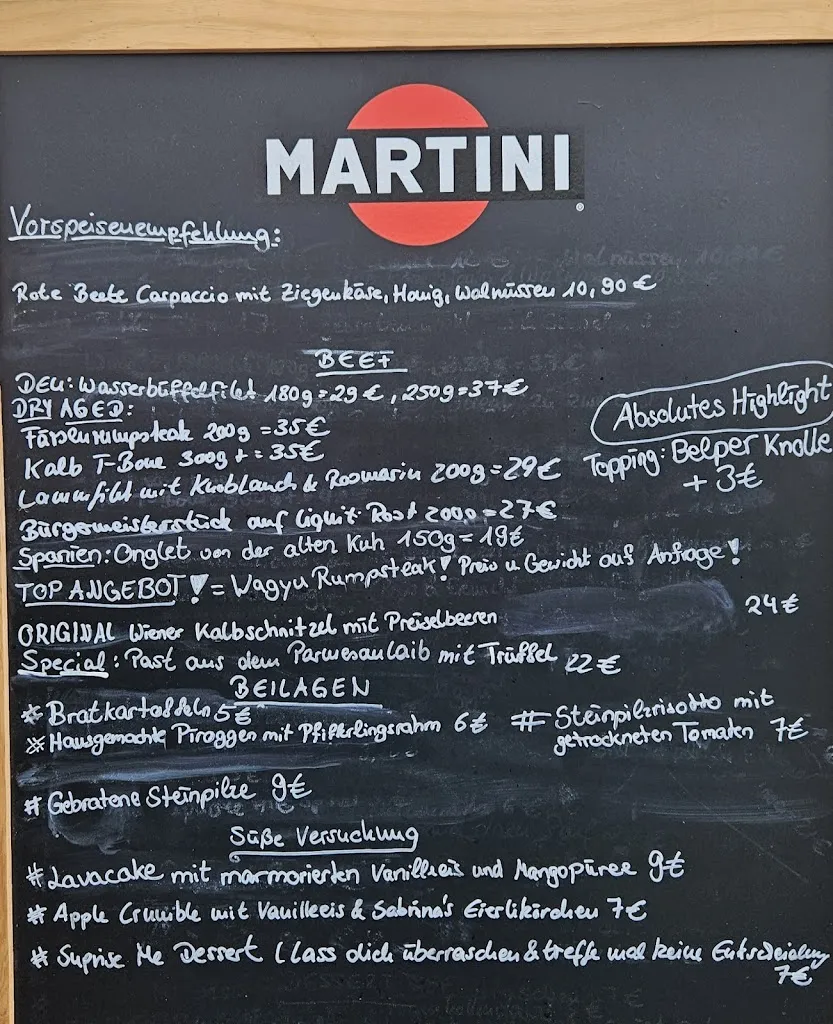 MARTINI
Vorspeisenempfehlung:
Rote Beete Carpaccio mit Ziegenkäse, Honig, Walnüssen 10,90 €
BEEF
DELI: Wasserbüffelfilet 180g = 29 €, 250g = 37 €
DRY AGED:
Färsenrumpsteak 200g = 35€
Kalb T-Bone 300g + = 35€
Lammfilet mit Knoblauch & Rosmarin 200g = 29€
Absolutes Highlight
Topping: Belper Knolle
+ 3€
Bürgermeisterstück auf 200g = 27€
Spanien: Onglet von der alten Kuh 150g = 19€
TOP ANGEBOT! = Wagyu Rumpsteak! Preis u Gewicht auf Anfrage!
ORIGINAL Wiener Kalbschnitzel mit Preiselbeeren 24€
Special: Past aus dem Parmesanlaib mit Trüffel 22€
BEILAGEN
* Bratkartoffeln 5€
* Hausgemachte Piroggen mit Pfifferlingsrahm 6€
# Steinpilzrisotto mit
getrockneten Tomaten 7€
# Gebratene Steinpilze 9€
Süße Versuchung
# Lavacake mit marmorierten Vanilleeis und Mangopüree 9€
# Apple Crumble mit Vanilleeis & Sabrina's Eierlikörchen 7€
# Suprise Me Dessert (lass dich überraschen & treffe mal keine Entscheidung
7€